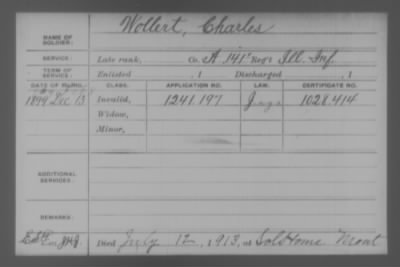 Wollert, Charles
NAME OF SOLDIER:
SERVICE: Late rank, Co. A 141" Reg't Ill. Inf.
TERM OF SERVICE: Enlisted , 1 Discharged , 1
DATE OF FILING. CLASS. APPLICATION NO. LAW. CERTIFICATE NO.
1899 Dec 13 Invalid, 1241.197 1028.414
Widow,
Minor,
ADDITIONAL SERVICES:
REMARKS:
Died July 12, 1913, at Sol Home Mont